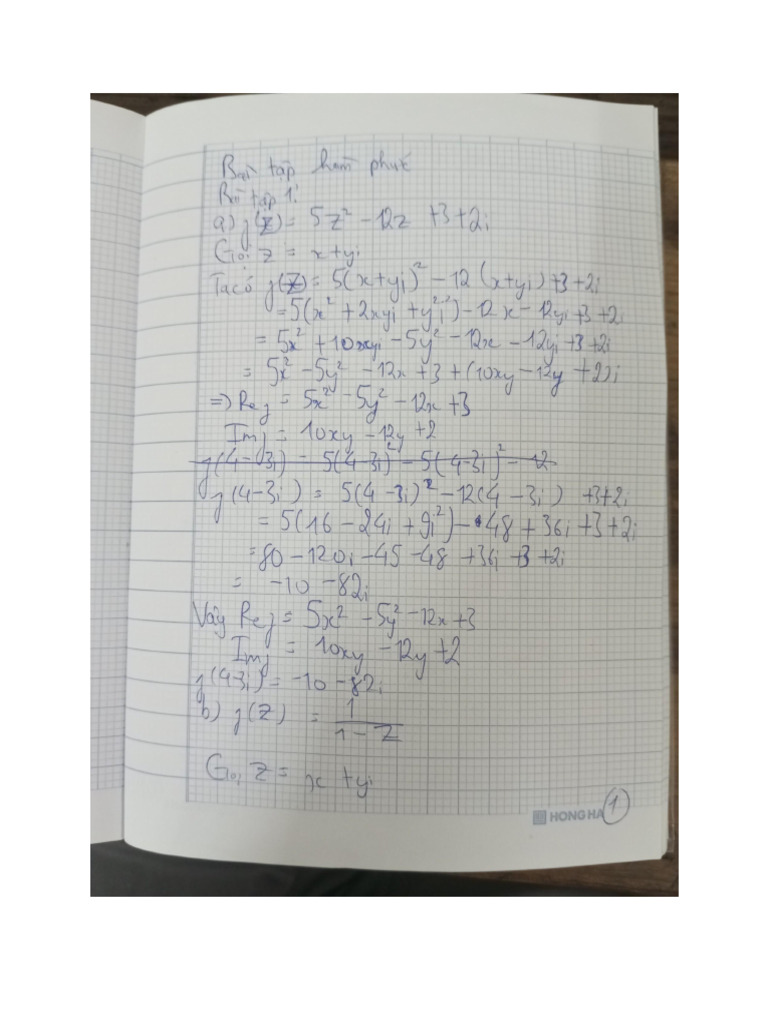 Bài tập hàm phức
Bài tập 1:
a) f(z) = 5z² - 12z + 3 + 2i
Gọi z = x + yi
Ta có f(z) = 5(x + yi)² - 12(x + yi) + 3 + 2i
= 5(x² + 2xyi + y²i²) - 12x - 12yi + 3 + 2i
= 5x² + 10xyi - 5y² - 12x - 12yi + 3 + 2i
= 5x² - 5y² - 12x + 3 + (10xy - 12y + 2)i
=> Re f = 5x² - 5y² - 12x + 3
Im f = 10xy - 12y + 2
f(4 - 3i) = 5(4 - 3i)² - 5(4 - 3i)² - 12
f(4 - 3i) = 5(4 - 3i)² - 12(4 - 3i) + 3 + 2i
= 5(16 - 24i + 9i²) - 48 + 36i + 3 + 2i
= 80 - 120i - 45 - 48 + 36i + 3 + 2i
= -10 - 82i
Vậy Re f = 5x² - 5y² - 12x + 3
Im f = 10xy - 12y + 2
f(4-3i) = -10 - 82i
b) f(z) = 1/(1 - z)
Gọi z = x + yi
HONG HA 1